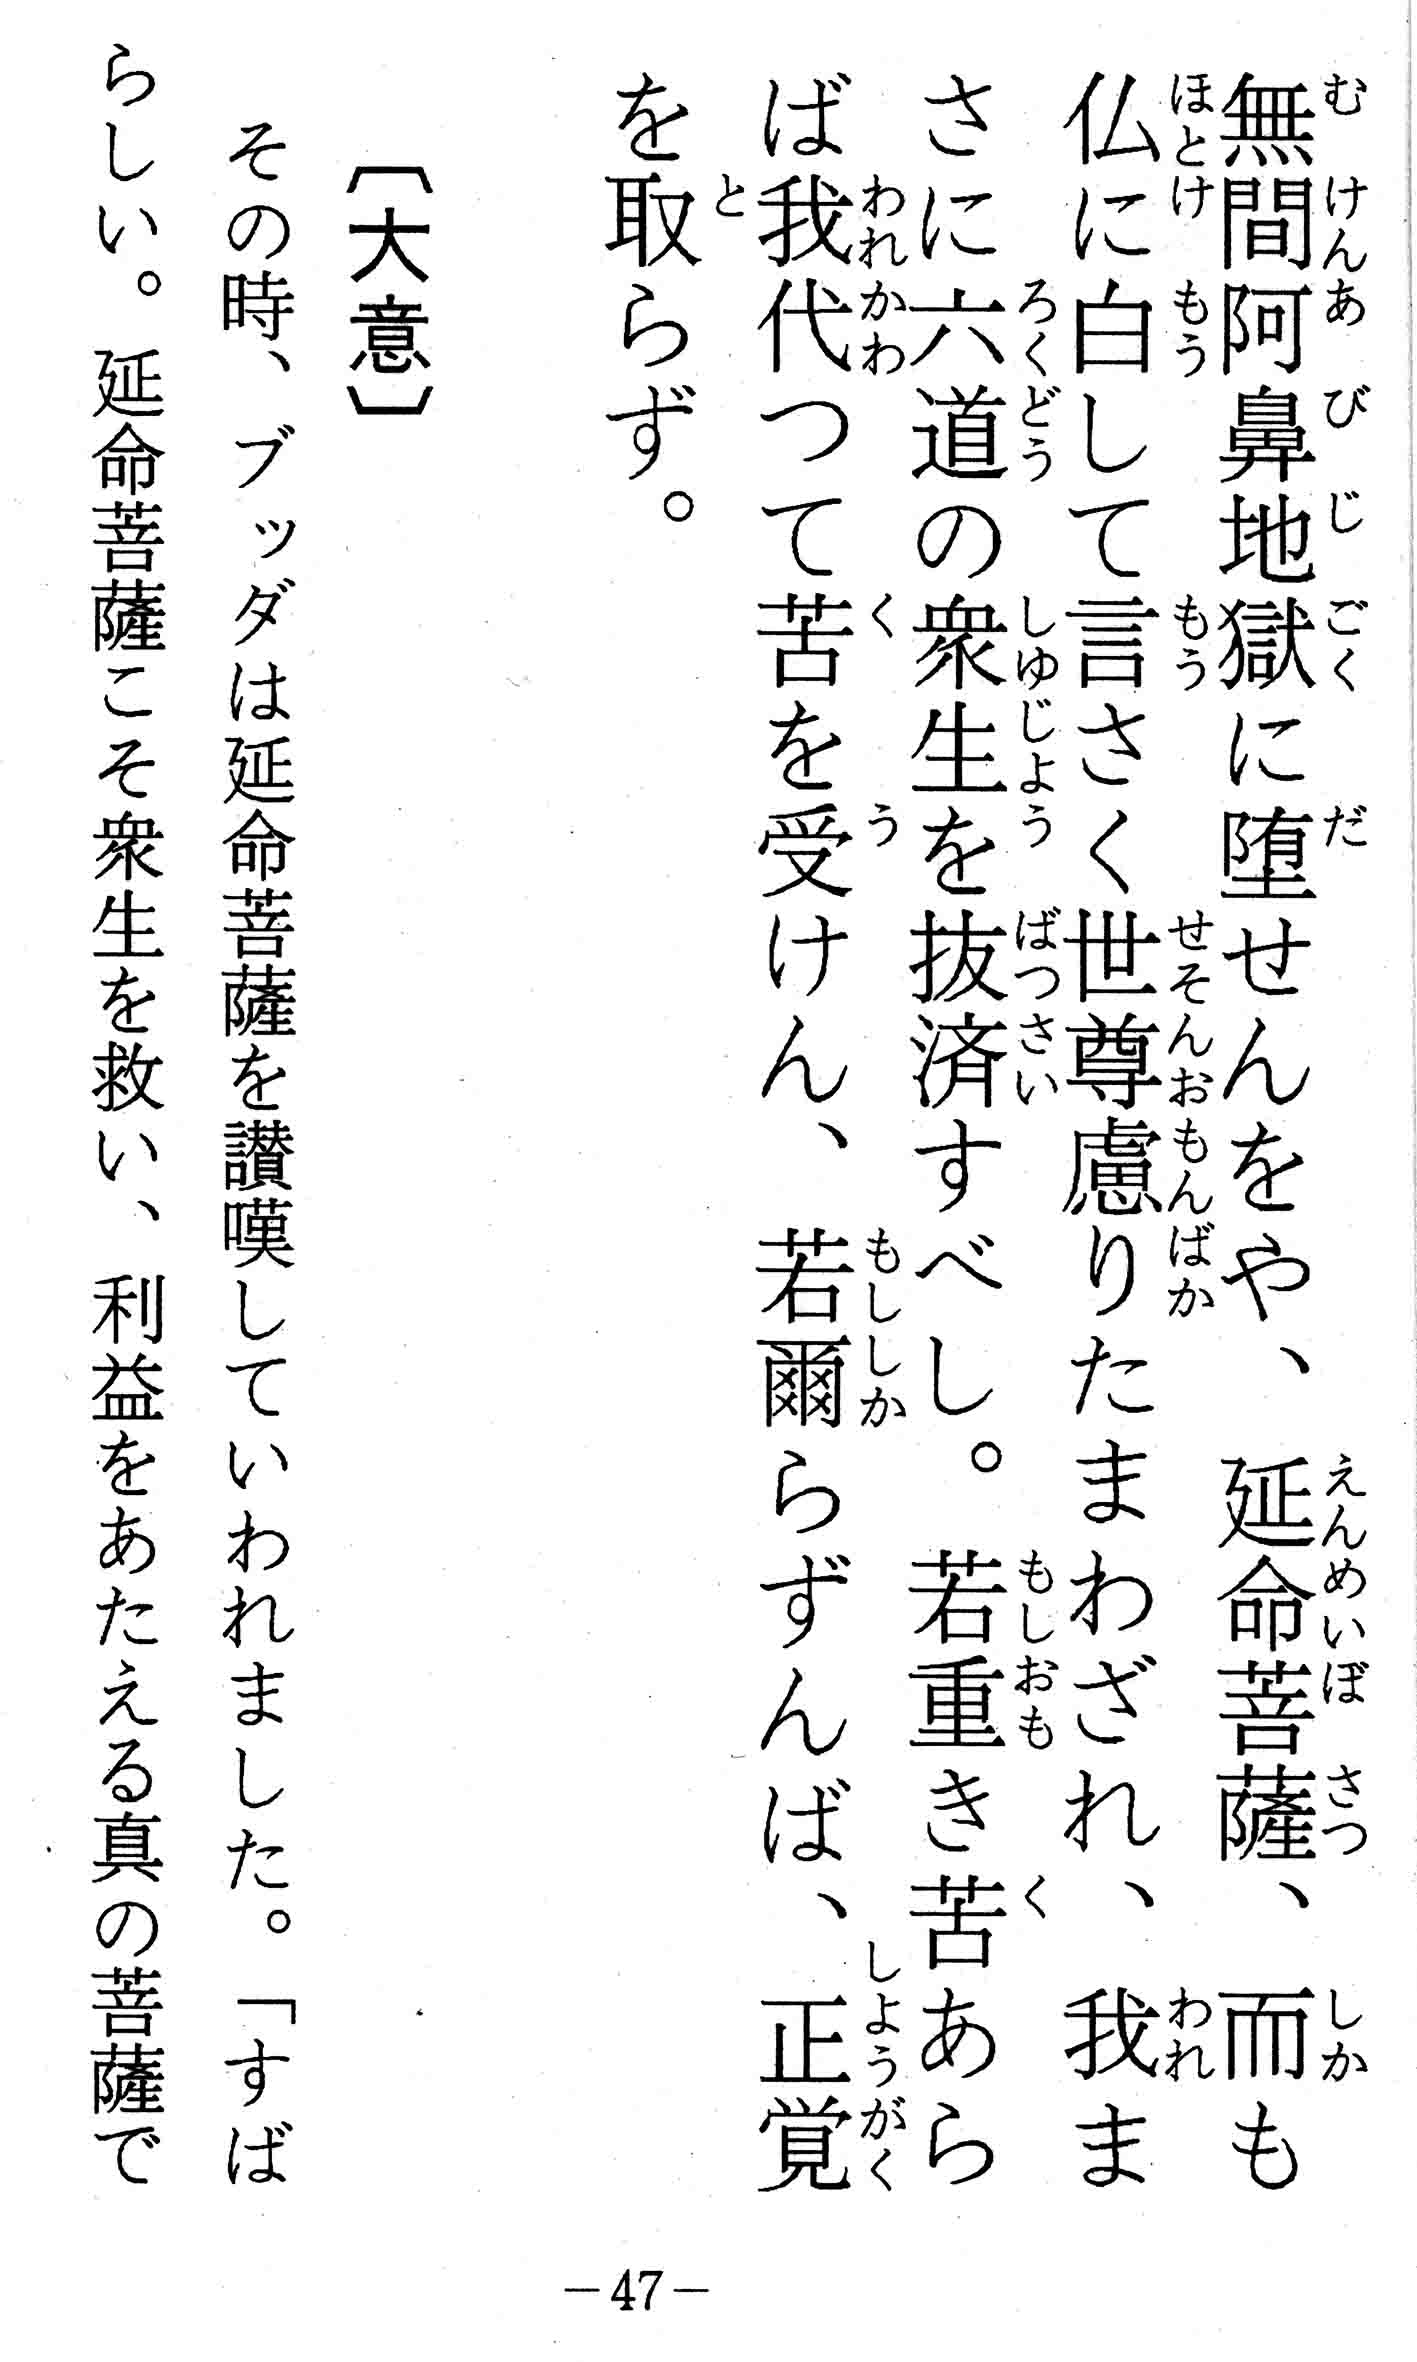 無間阿鼻地獄に堕せんをや、延命菩薩、而も
仏に白して言さく世尊慮りたまわざれ、我ま
さに六道の衆生を抜済すべし。若重き苦あら
ば我代つて苦を受けん、若爾らずんば、正覚
を取らず。
〔大意〕
その時、ブッダは延命菩薩を讃嘆していわれました。「すば
らしい。延命菩薩こそ衆生を救い、利益をあたえる真の菩薩で
－47－